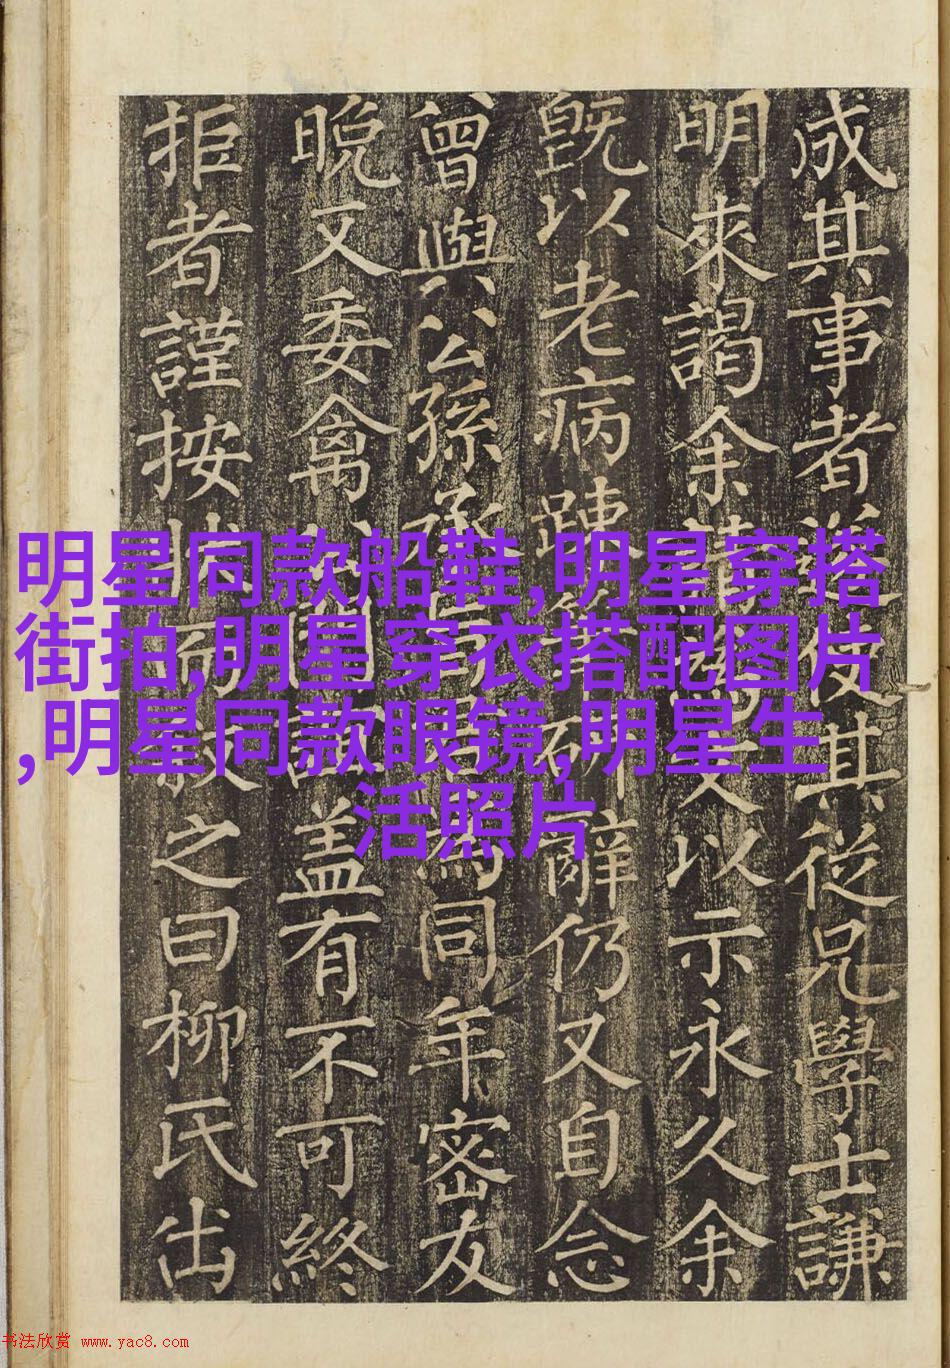 成其事者使其從兄學士謙
明來謁余請文以示永久余
旣以老病踈辭仍又自念
曾與公孫同年密友
晚又委禽盖有不可終
拒者謹按之曰柳氏出
明星同款船鞋,明星穿搭
街拍,明星穿衣搭配图片
,明星同款眼镜,明星生
活照片
书法欣赏 www.yac8.com